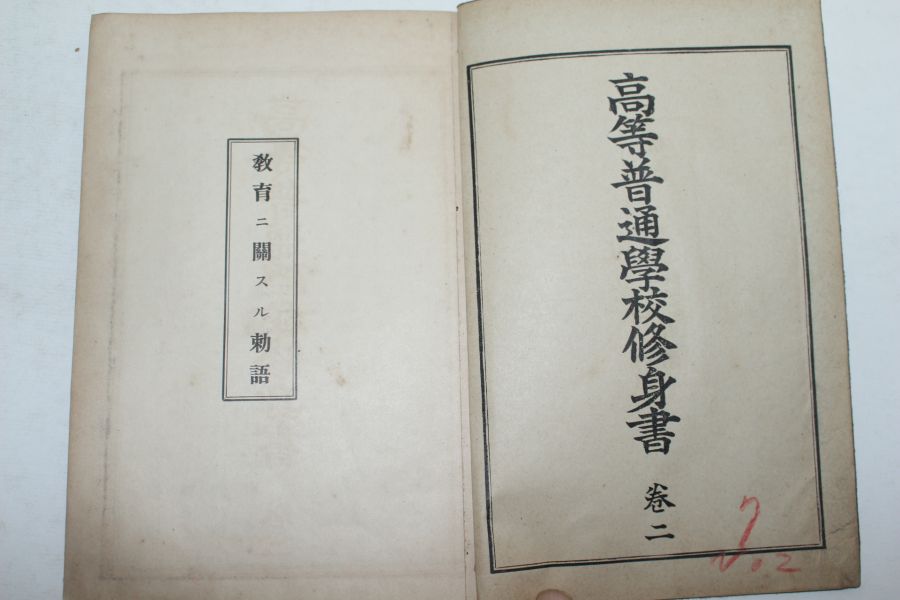 高等普通學校修身書 卷二
No. 2
教育ニ關スル勅語